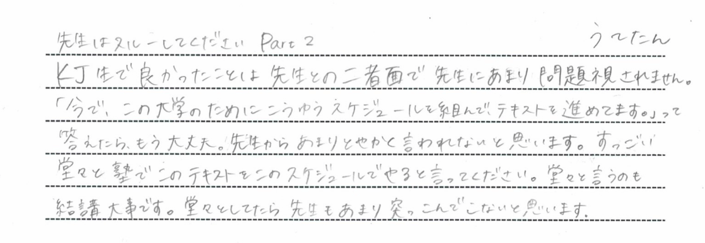 先生はスルーしてください Part 2 うてたん
KJ生で良かったことは先生との二者面で先生にあまり問題視されません。
「今で、この大学のためにこうゆうスケジュールを組んで、テキストを進めてます。」って
答えたら、もう大丈夫。先生からあまりとやかく言われないと思います。すっごい
堂々と塾でこのテキストをこのスケジュールでやると言ってください。堂々と言うのも
結講大事です。堂々としてたら先生もあまり突っこんでこないと思います.